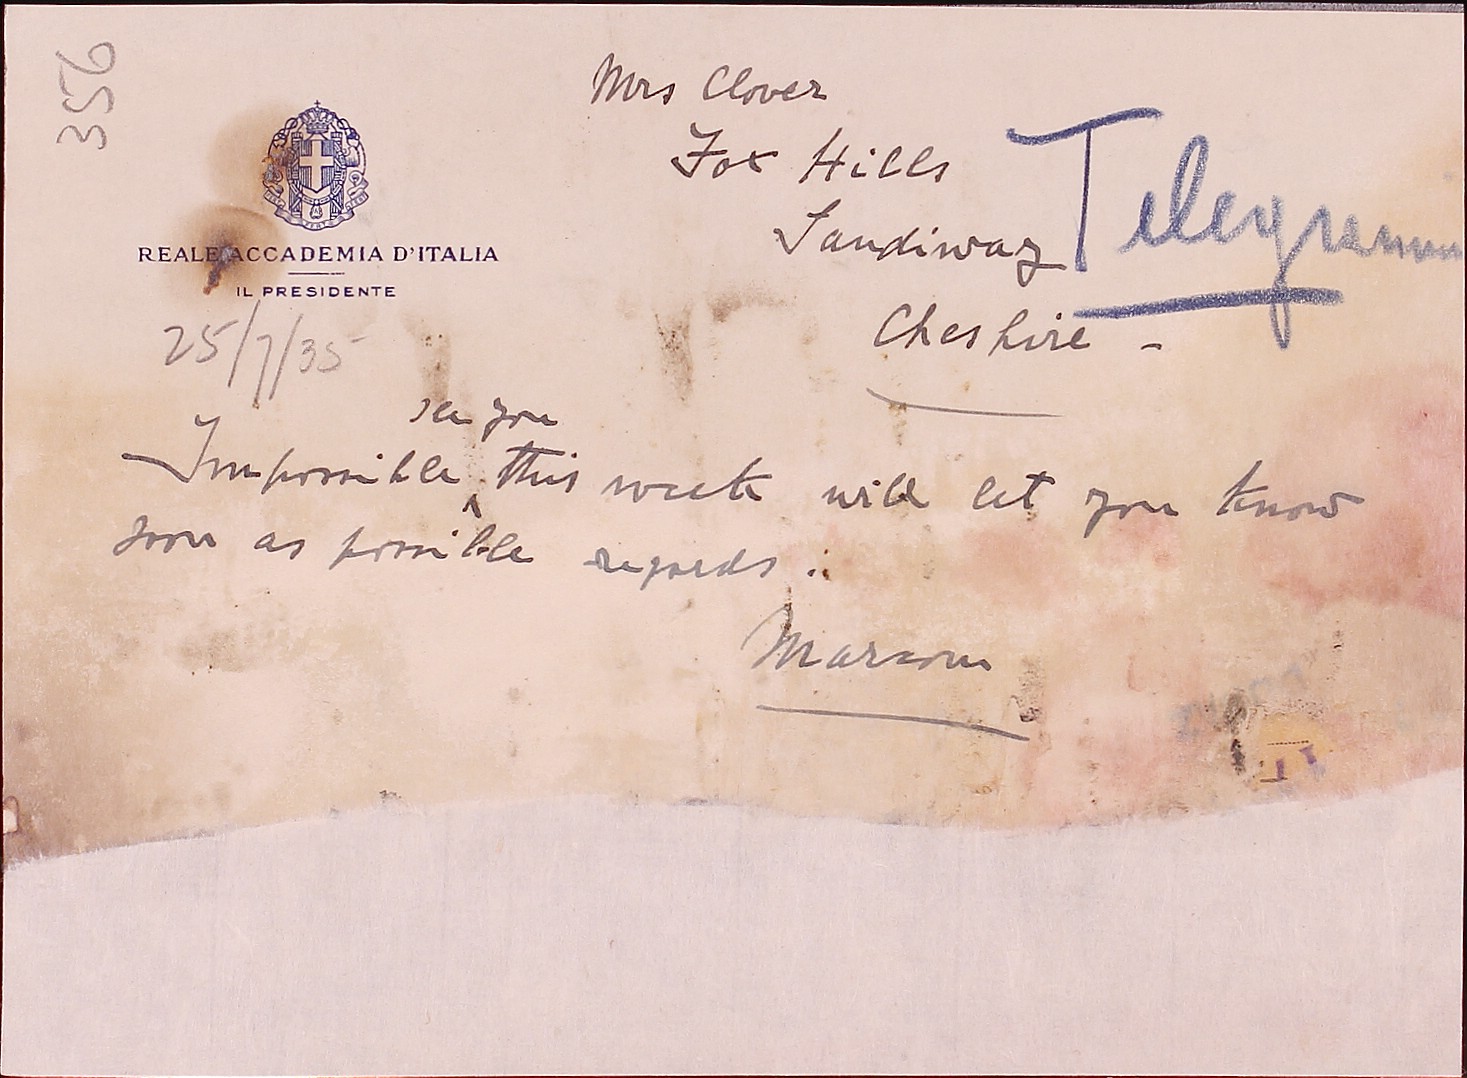 356
Mrs Clover
Fox Hills
Sandiway
Cheshire -
Telegramm
REALE ACCADEMIA D'ITALIA
IL PRESIDENTE
25/7/35
see you
Impossible ^ this week will let you know
soon as possible regards .
Marconi